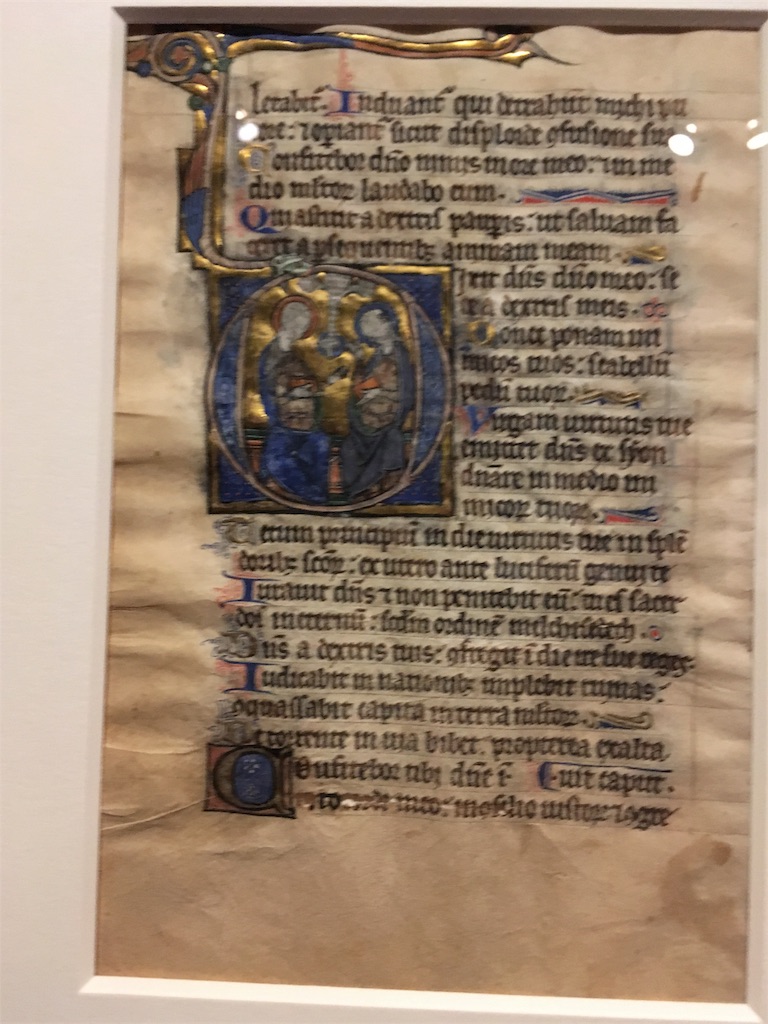 letabit᷑. Induant᷑ qui detrahūt michi pu
dore: ⁊ opiant᷑ sicut disploide ɔfusione sua
Confitebor dño nimis in ore meo: ⁊ in me
dio mltoꝝ laudabo eum.
Qui astitit a dextris pauꝑis: ut saluam fa
ceret a ꝑsequentibꝫ animam meam.
Dixit dñs dño meo: se
de a dextris meis.
Donec ponam ini
micos tuos: scabellū
pedū tuoꝝ.
Virgam uirtutis tue
emittet dñs ex syon
dñare in medio ini
micoꝝ tuoꝝ.
Tecum principiū in die uirtutis tue in splē
doribꝫ scōꝝ: ex utero ante luciferū genui te
Iurauit dñs ⁊ non penitebit eū: tu es sacer
dos in eternū: scdm ordinē melchisedech.
Dñs a dextris tuis: ɔfregit ī die ire sue reges.
Iudicabit in nationibꝫ implebit ruinas:
ɔquassabit capita in terra mltoꝝ.
De torrente in uia bibet. propterea exalta
Confitebor tibi dñe ī uit caput.
toto corde meo: in ɔsilio iustoꝝ ⁊ ɔgre